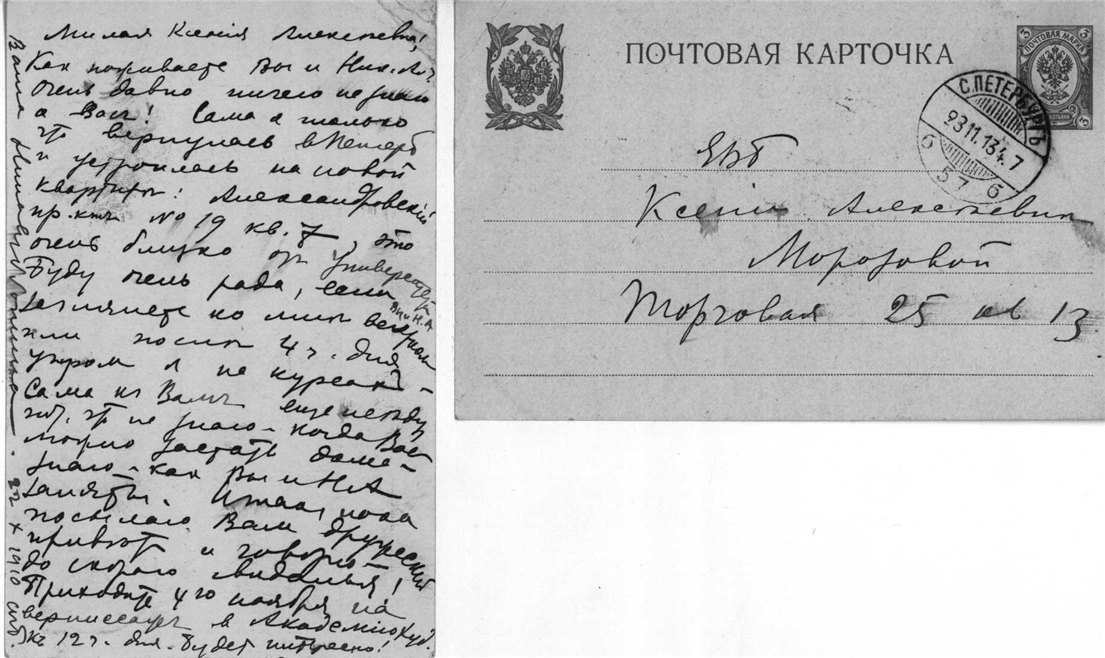 Милая Ксенія Алексѣевна!
Какъ поживаете Вы и Ник. Ал.
Очень давно ничего не знаю
о Васъ! Сама я только
что вернулась въ Петерб
и устроилась на новой
квартирѣ: Александровскій
пр-ктъ No 19 кв. 7, это
очень близко отъ Университета
Буду очень рада, если
Вы и Н. А.
заглянете ко мнѣ вечеромъ
или послѣ 4 ч. дня,
утромъ я на курсахъ -
Сама къ Вамъ еще не иду
что не знаю - когда Васъ
можно застать дома -
знаю - какъ Вы и НА
заняты. Итакъ, пока
посылаю Вамъ дружескій
привѣтъ и говорю -
до скораго свиданья!
Приходите 4го ноября на
вернисажъ в Академію Худ.
къ 12 ч. дня. Будет интересно!
Ваша
22 X 1910 спб.
ПОЧТОВАЯ КАРТОЧКА
3 ПОЧТОВАЯ МАРКА 3
3 3
С.ПЕТЕРБУРГЪ
23.11.13 4. 7
6 57 6
ЕВБ
Ксеніи Алексѣевнѣ
Морозовой
Торговая 25 кв 13